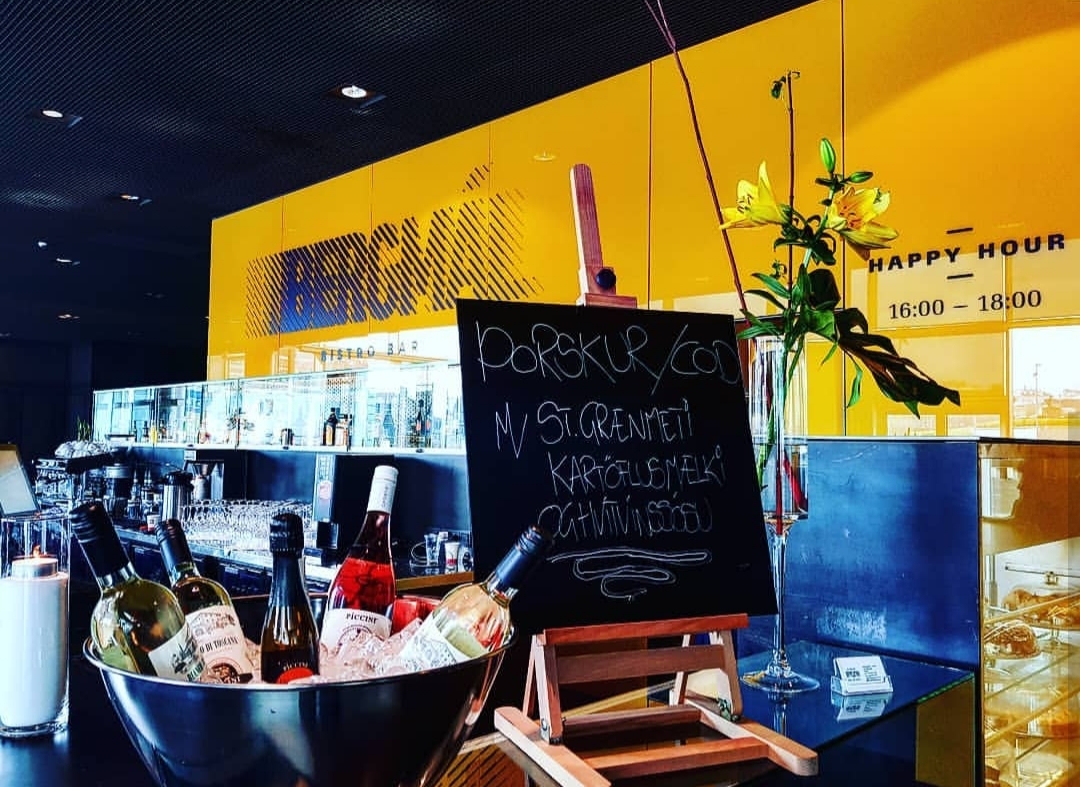 BERGMÁL
BISTRO BAR
HAPPY HOUR
16:00 – 18:00
ÞORSKUR/COD
M/ ST.GRÆNMETI
KARTÖFLUSMÆLKI
OG HVÍTVÍNSSÓSU
PICCINI
PICCINI